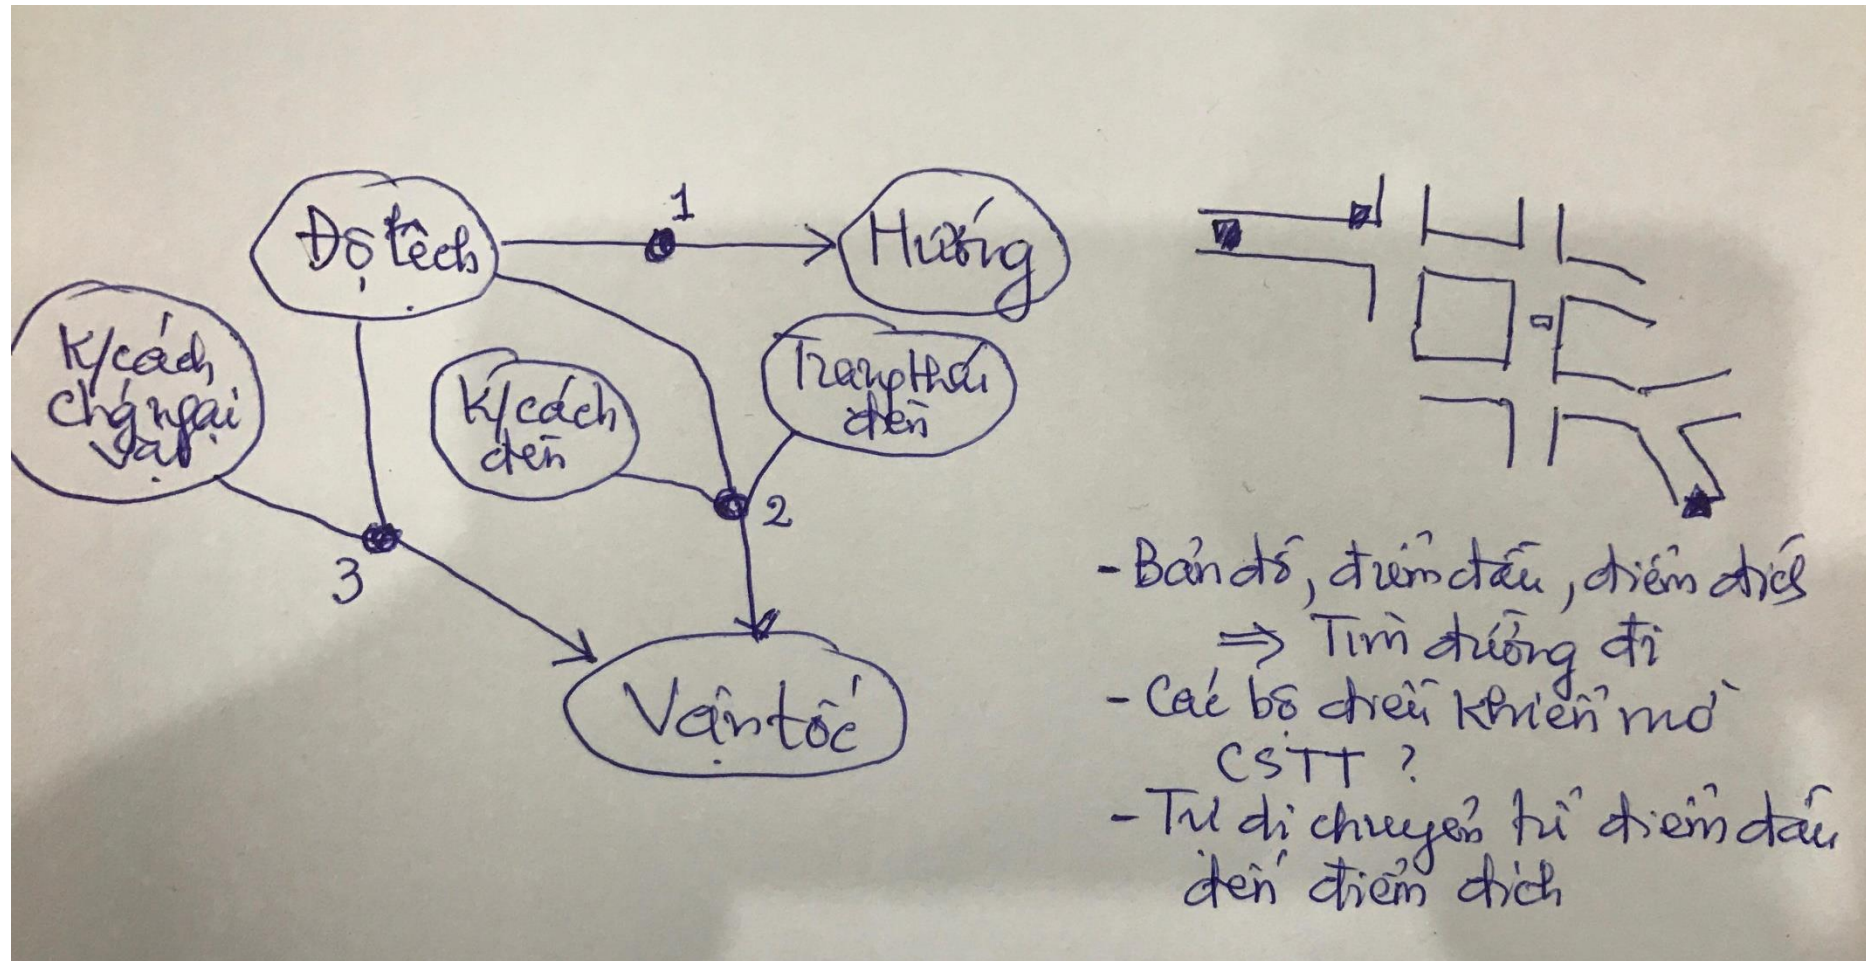 Độ lệch
1
Hướng
K/cách
chướng ngại
vật
K/cách
đèn
Trạng thái
đèn
2
3
Vận tốc
- Bản đồ, điểm đầu, điểm đích
⇒ Tìm đường đi
- Các bộ điều khiển mờ
CSTT ?
- Tự di chuyển từ điểm đầu
đến điểm đích